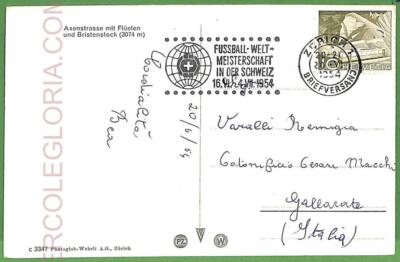 Axenstrasse mit Flüelen
und Bristenstock (3074 m)
FUSSBALL-WELT-
MEISTERSCHAFT
IN DER SCHWEIZ
16.VI.-4.VII.1954
ZÜRICH
1954
BRIEFVERSAND
HELVETIA
Cordialità
Bea
20/6/54
Varalli Remigia
Cotonificio Cesare Macchi
Gallarate
(Italia)
ERCOLEGLORIA.COM
c 3347 Photoglob-Wehrli A.G., Zürich
PZ
W